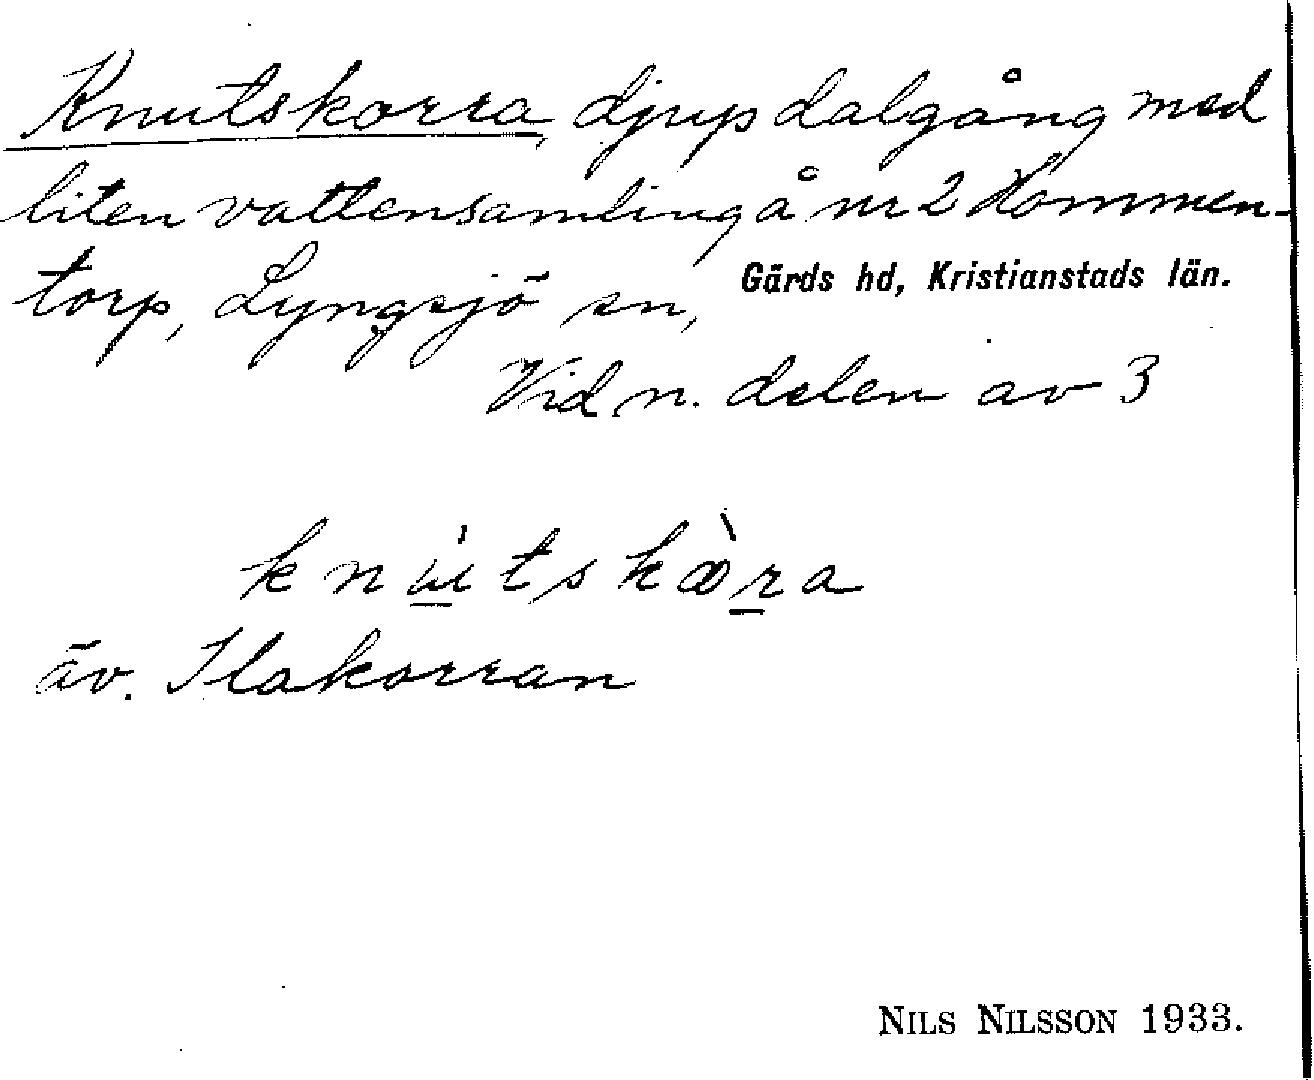 Knutskorra, djup dalgång med
liten vattensamling å nr 2 Hommen-
torp, Lyngsjö sn, Gärds hd, Kristianstads län.
Vid n. delen av 3
äv. Ilakorran
NILS NILSSON 1933.